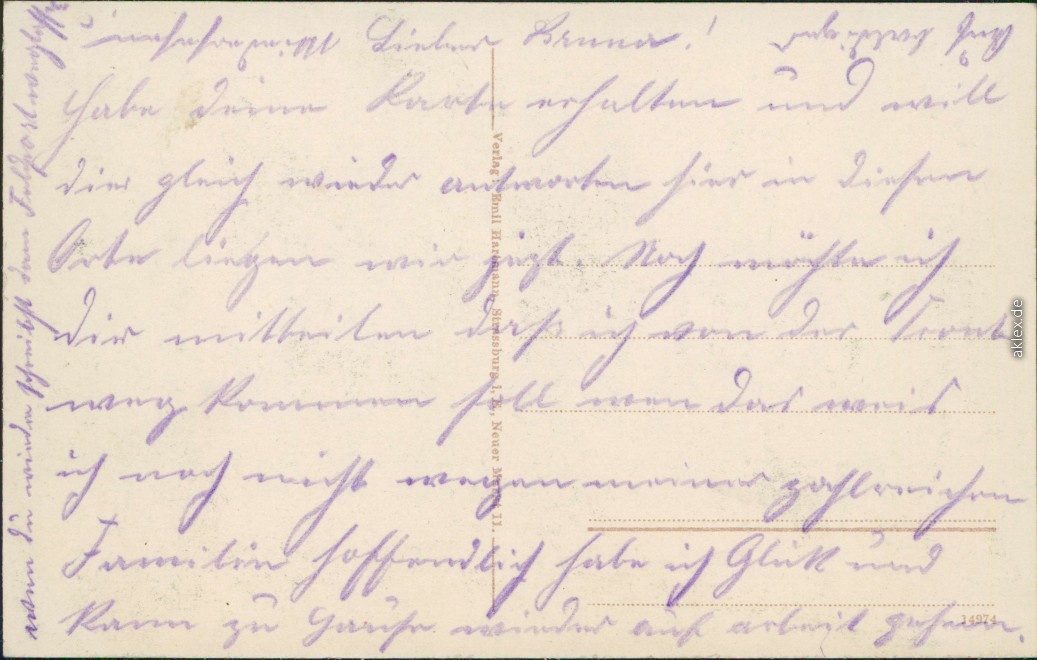 Lieber Bruno!
Habe deine Karte erhalten und will
dier gleich wieder antworten hier in diesem
Orte liegen wir jezt. Noch möchte ich
dir mitteilen daß ich von der Front
weg kommen soll wen das weis
ich noch nicht wegen meiner zahlreichen
Familie hoffendlich habe ich Glük und
kann zu Hause wieder auf arbeit gehen.
wenn du wieder schreibst dann Feldpost
Verlag: Emil Hartmann, Strassburg i. E., Neuer Markt 11.
14974
aklex.de